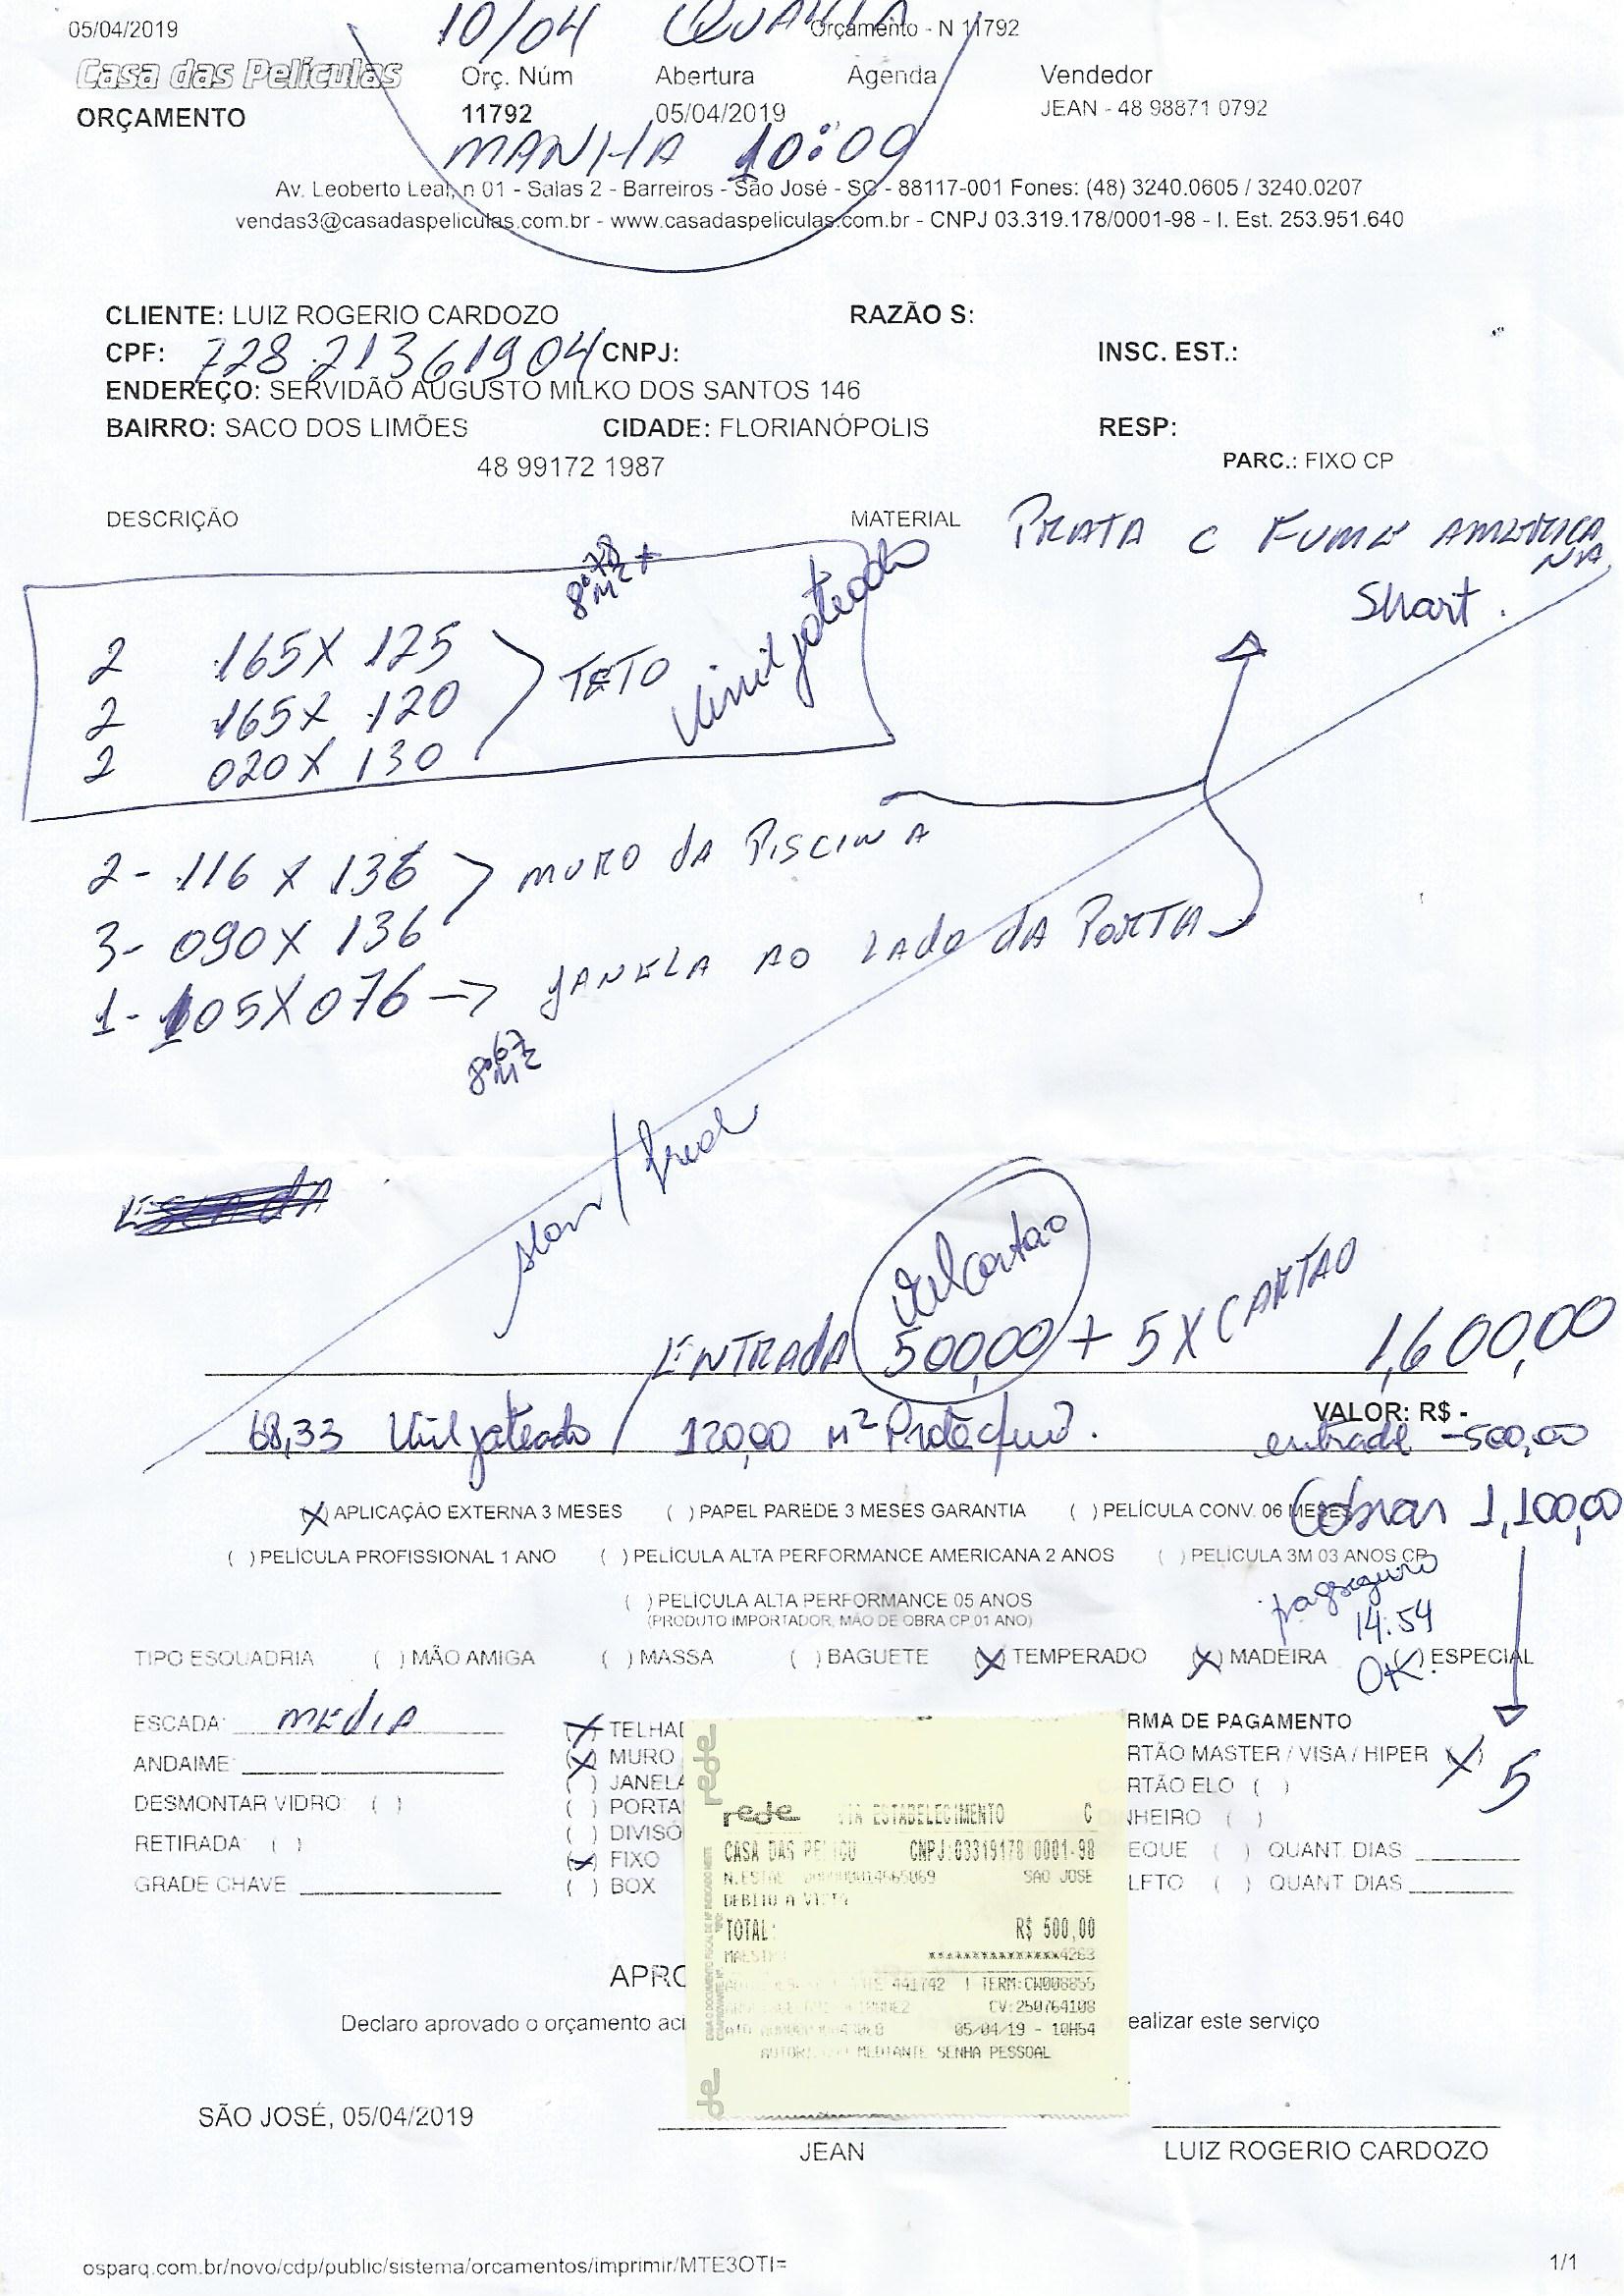 05/04/2019
10/04 QUARTA
Orçamento - N 11792
Casa das Películas
Orç. Núm Abertura Agenda Vendedor
ORÇAMENTO
11792 05/04/2019 JEAN - 48 98871 0792
MANHA 10:00
Av. Leoberto Leal, n 01 - Salas 2 - Barreiros - São José - SC - 88117-001 Fones: (48) 3240.0605 / 3240.0207
vendas3@casadaspeliculas.com.br - www.casadaspeliculas.com.br - CNPJ 03.319.178/0001-98 - I. Est. 253.951.640
CLIENTE: LUIZ ROGERIO CARDOZO RAZÃO S:
CPF: 728.21361904 CNPJ: INSC. EST.:
ENDEREÇO: SERVIDÃO AUGUSTO MILKO DOS SANTOS 146
BAIRRO: SACO DOS LIMÕES CIDADE: FLORIANÓPOLIS RESP:
48 99172 1987 PARC.: FIXO CP
DESCRIÇÃO MATERIAL PRATA C FUMÊ AMERICA
NA
8,78 M2 +
2 165X125
2 165X120 TETO Vinil jateado
2 020X130
2- 116 X 136 > MURO DA PISCINA
3- 090X 136
1- 105X076 -> JANELA AO LADO DA PORTA
8,67 M2
ENTRADA 500,00 + 5X CARTAO 1,600,00
VALOR: R$ -
68,33 Vinil jateado / 120,00 M2
entrada -500,00
Cobrar 1,100,00
(X) APLICAÇÃO EXTERNA 3 MESES ( ) PAPEL PAREDE 3 MESES GARANTIA ( ) PELÍCULA CONV. 06 MESES
( ) PELÍCULA PROFISSIONAL 1 ANO ( ) PELÍCULA ALTA PERFORMANCE AMERICANA 2 ANOS ( ) PELICULA 3M 03 ANOS CP
( ) PELÍCULA ALTA PERFORMANCE 05 ANOS
(PRODUTO IMPORTADOR, MÃO DE OBRA CP 01 ANO)
pagseguro
14:54
OK.
TIPO ESQUADRIA ( ) MÃO AMIGA ( ) MASSA ( ) BAGUETE (X) TEMPERADO (X) MADEIRA ( ) ESPECIAL
ESCADA: MEDIA
ANDAIME:
DESMONTAR VIDRO: ( )
RETIRADA: ( )
GRADE CHAVE
(X) TELHAD
(X) MURO
( ) JANELA
( ) PORTA
( ) DIVISÓ
(X) FIXO
( ) BOX
RMA DE PAGAMENTO
RTÃO MASTER / VISA / HIPER (X) 5
RTÃO ELO ( )
INHEIRO ( )
EQUE ( ) QUANT DIAS
LETO ( ) QUANT DIAS
rede
rede VIA ESTABELECIMENTO C
CASA DAS PELICU CNPJ:03319178/0001-98
SAO JOSE
DEBITO A VISTA
TOTAL: R$ 500,00
***************4263
441742 TERM:CW006855
CV:250764108
05/04/19 - 10H54
MEDIANTE SENHA PESSOAL
APRO
Declaro aprovado o orçamento aci ealizar este serviço
SÃO JOSÉ, 05/04/2019
JEAN LUIZ ROGERIO CARDOZO
osparq.com.br/novo/cdp/public/sistema/orcamentos/imprimir/MTE3OTI= 1/1